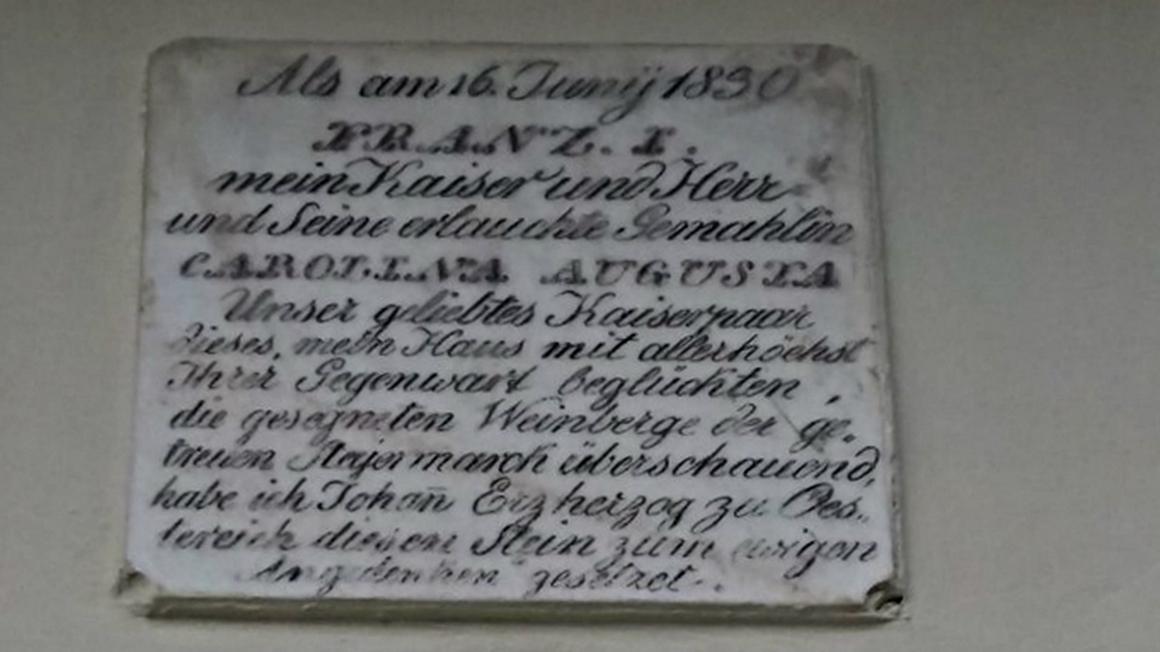 Als am 16. Junÿ 1830
FRANZ. I.
mein Kaiser und Herr
und Seine erlauchte Gemahlin
CAROLINA AUGUSTA
Unser geliebtes Kaiserpaar
dieses, mein Haus mit allerhöchst
Ihrer Gegenwart beglückten,
die gesegneten Weinberge der ge-
treuen Steyermarck überschauend,
habe ich Johañ Erzherzog zu Oes-
tereich diesen Stein zum ewigen
Angedenken gesetzet.